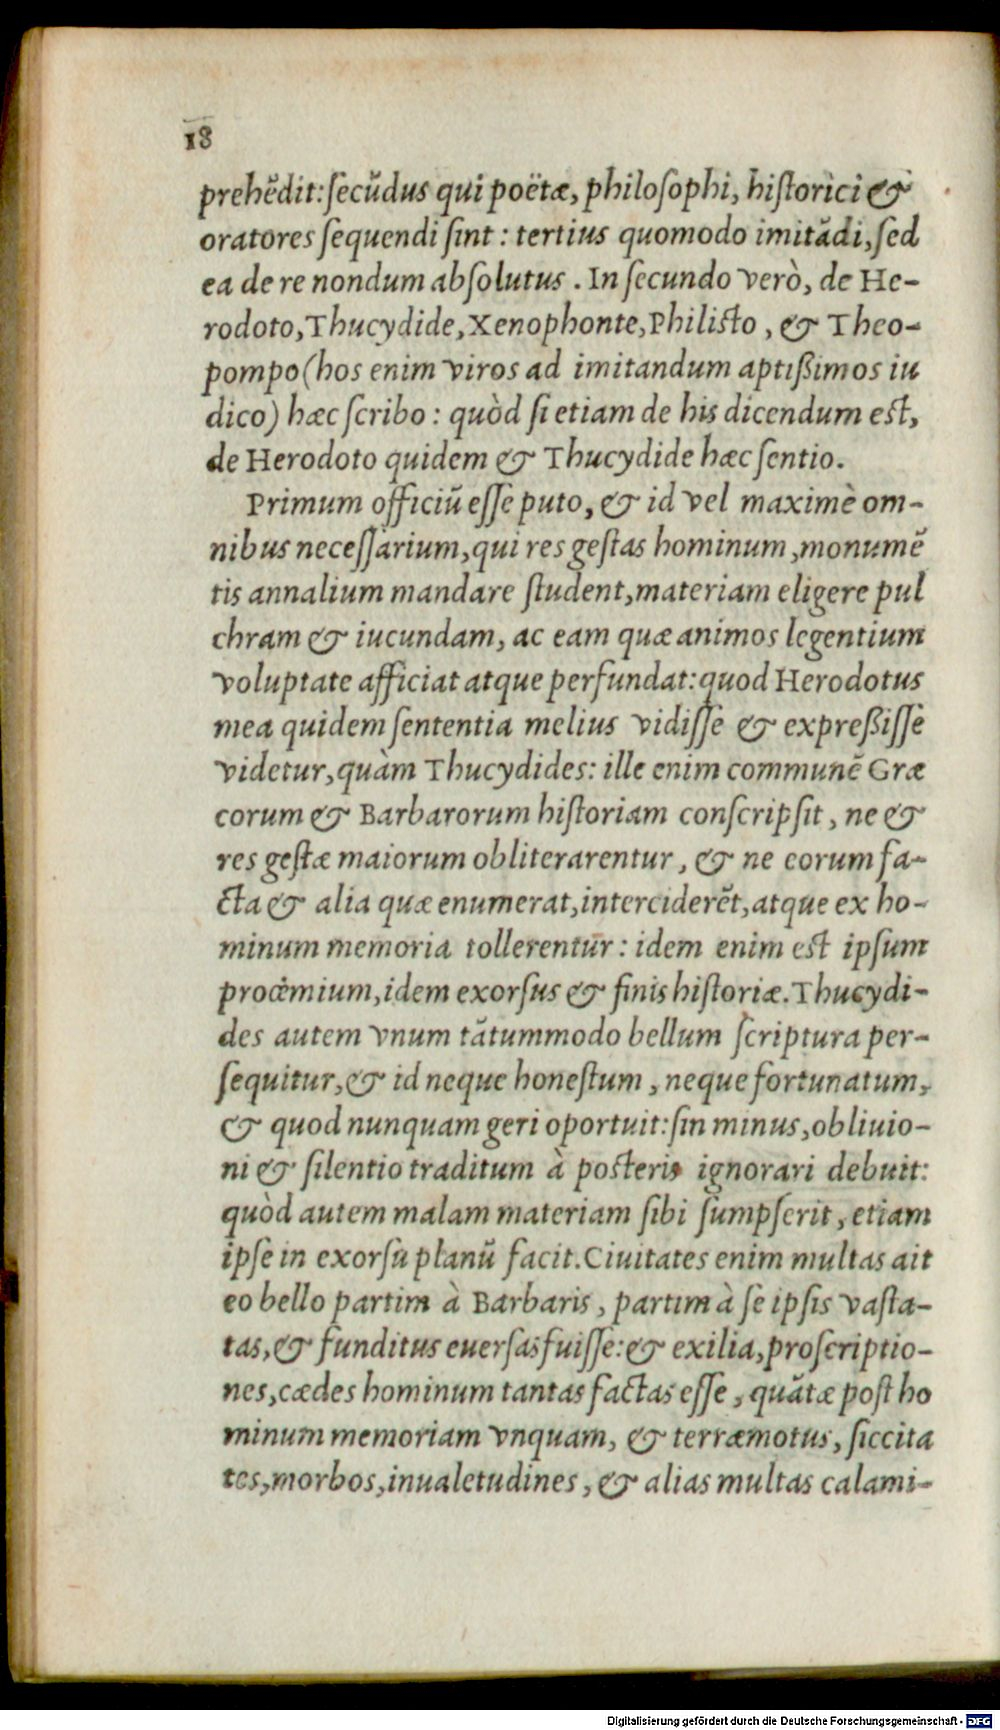 18
prehēdit: ſecūdus qui poëtæ, philoſophi, hiſtorici &
oratores ſequendi ſint : tertius quomodo imitādi, ſed
ea de re nondum abſolutus . In ſecundo verò, de He-
rodoto, Thucydide, Xenophonte, Philiſto , & Theo-
pompo (hos enim viros ad imitandum aptiſſimos iu
dico) hæc ſcribo : quòd ſi etiam de his dicendum eſt,
de Herodoto quidem & Thucydide hæc ſentio.
Primum officiū eſſe puto, & id vel maximè om-
nibus neceſſarium, qui res geſtas hominum , monumē
tis annalium mandare ſtudent, materiam eligere pul
chram & iucundam, ac eam quæ animos legentium
voluptate afficiat atque perfundat: quod Herodotus
mea quidem ſententia melius vidiſſe & expreſſiſſe
videtur, quàm Thucydides: ille enim communē Græ
corum & Barbarorum hiſtoriam conſcripſit , ne &
res geſtæ maiorum obliterarentur , & ne eorum fa-
cta & alia quæ enumerat, interciderēt, atque ex ho-
minum memoria tollerentur : idem enim eſt ipſum
proœmium, idem exorſus & finis hiſtoriæ. Thucydi-
des autem vnum tātummodo bellum ſcriptura per-
ſequitur, & id neque honeſtum , neque fortunatum,
& quod nunquam geri oportuit: ſin minus, obliuio-
ni & ſilentio traditum à poſteris ignorari debuit:
quòd autem malam materiam ſibi ſumpſerit , etiam
ipſe in exorſu planū facit. Ciuitates enim multas ait
eo bello partim à Barbaris , partim à ſe ipſis vaſta-
tas, & funditus euerſas fuiſſe: & exilia, proſcriptio-
nes, cædes hominum tantas factas eſſe , quātæ poſt ho
minum memoriam vnquam, & terræmotus, ſiccita
tes, morbos, inualetudines , & alias multas calami-
Digitalisierung gefördert durch die Deutsche Forschungsgemeinschaft - DFG